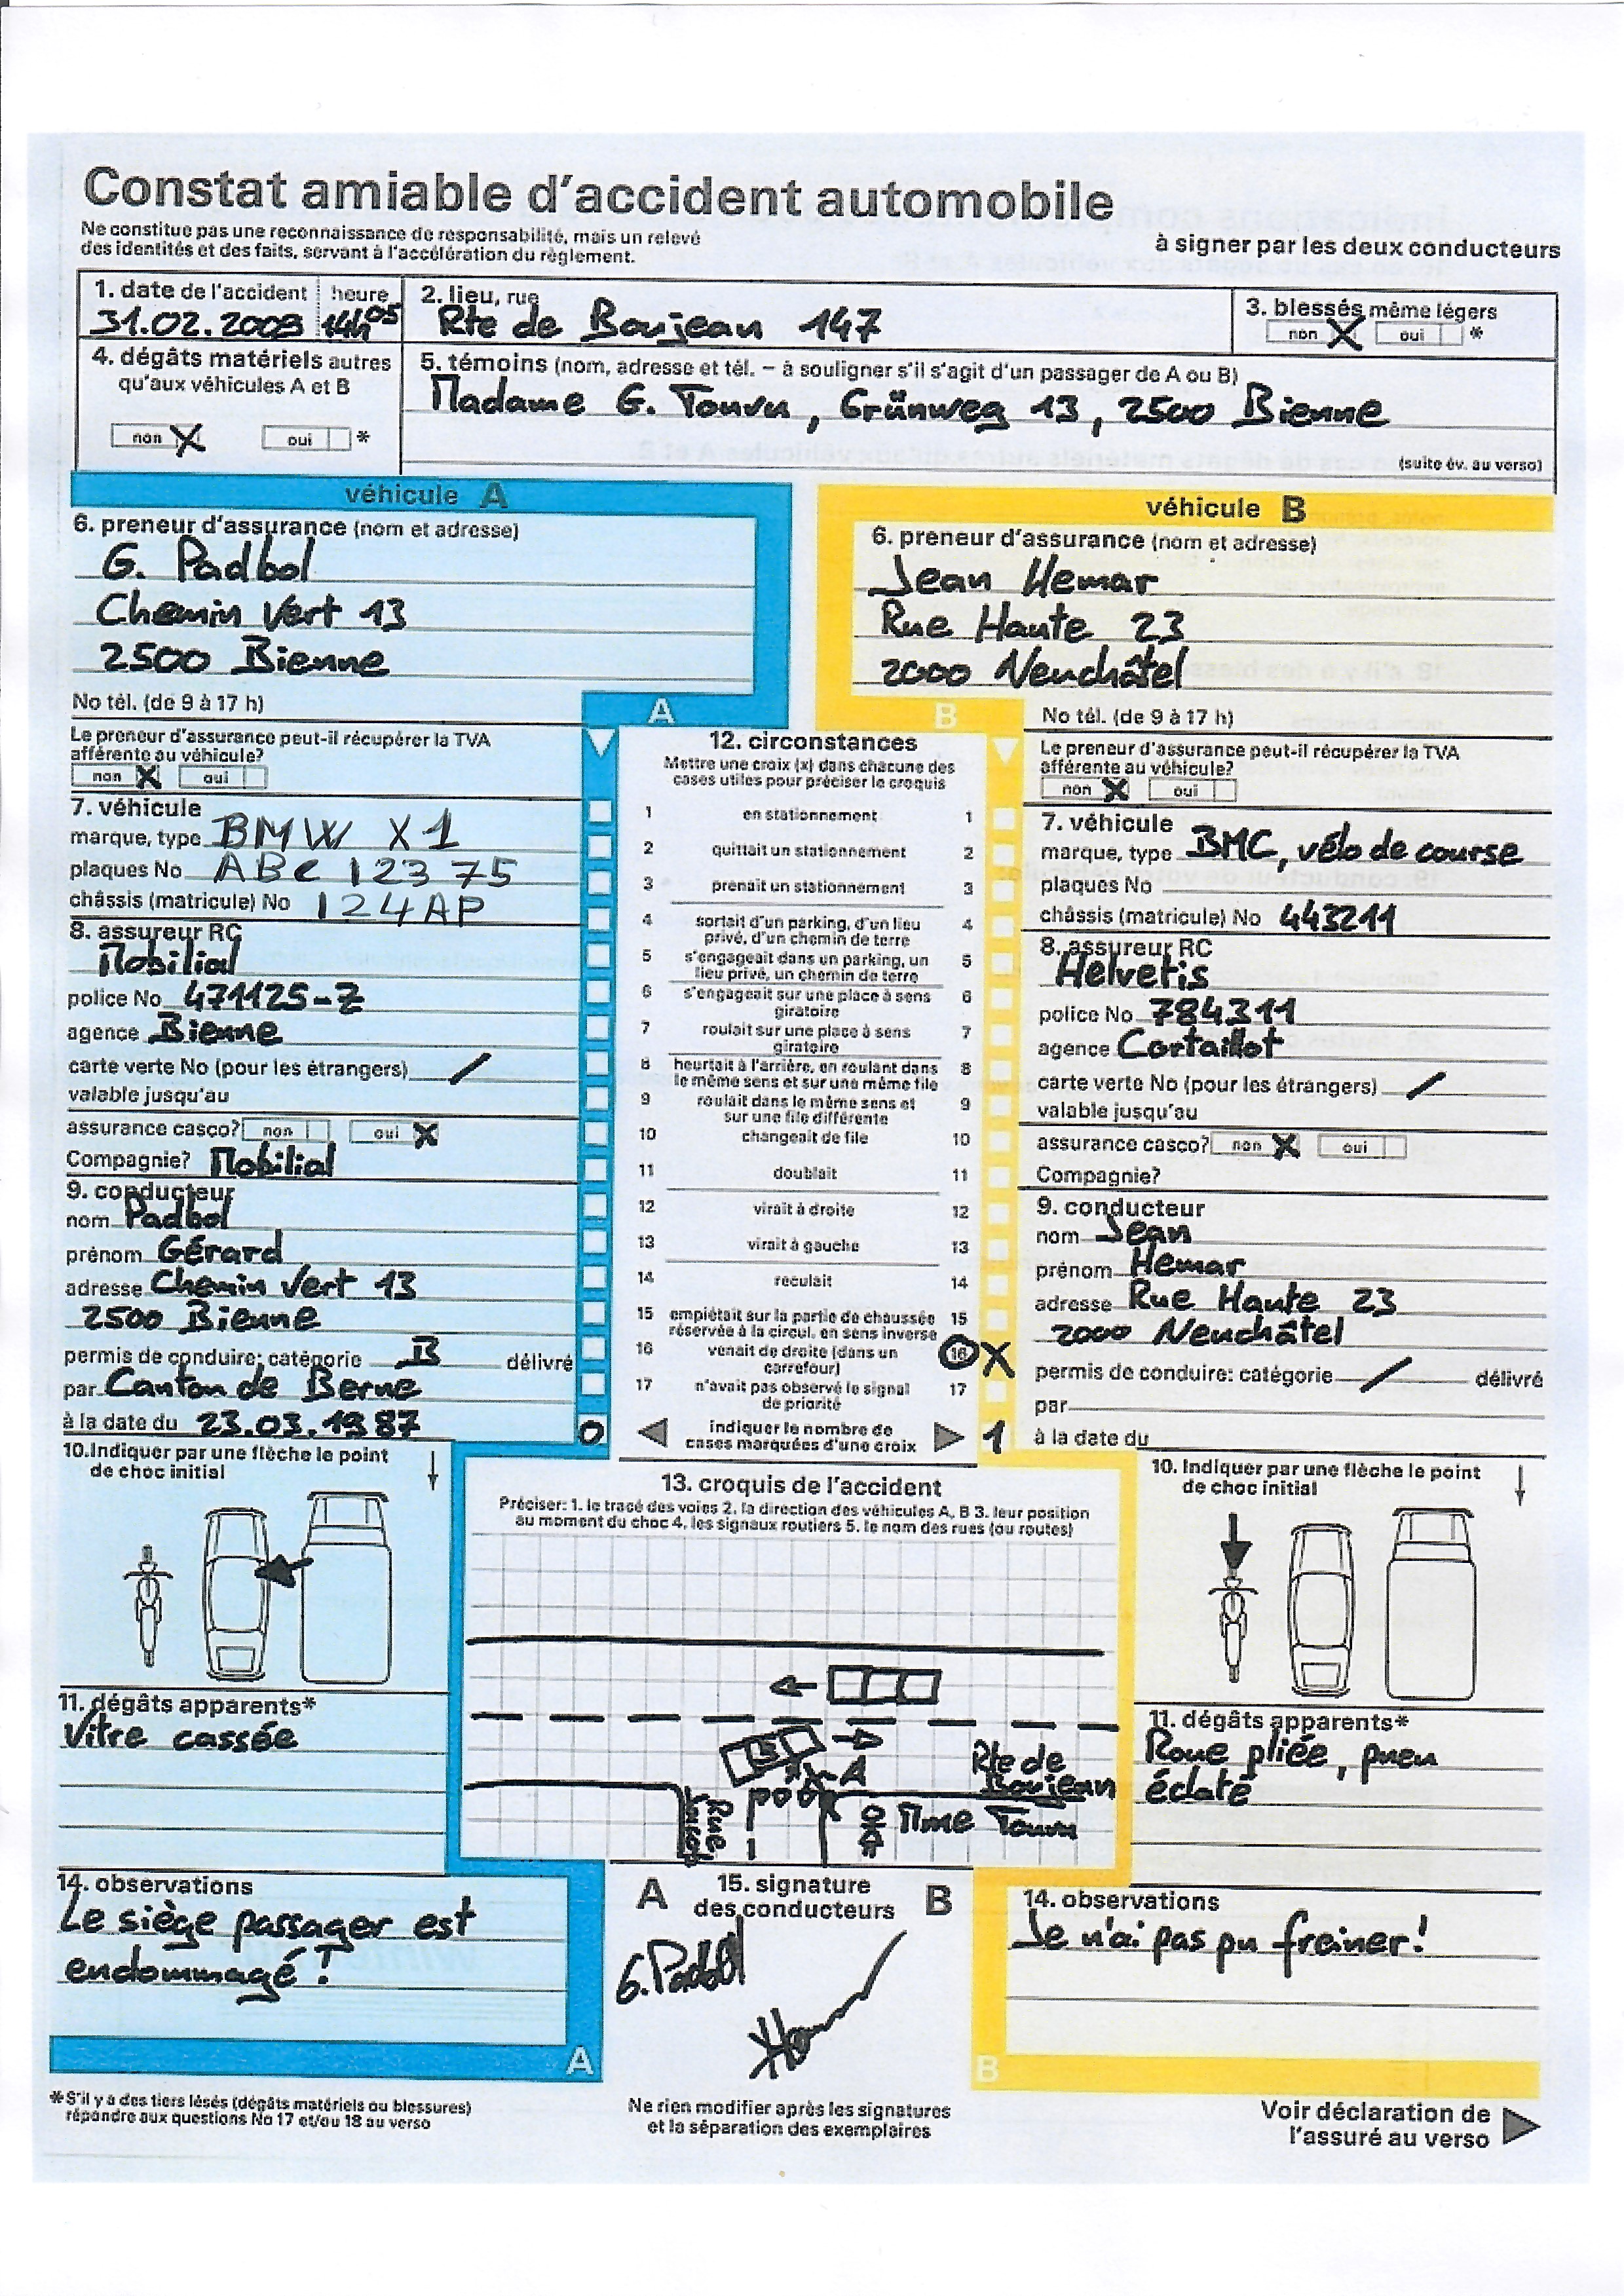 Constat amiable d'accident automobile
Ne constitue pas une reconnaissance de responsabilité, mais un relevé
des identités et des faits, servant à l'accélération du règlement.
à signer par les deux conducteurs
1. date de l'accident heure
31.02.2009 14h05
2. lieu, rue
Rte de Boujean 147
3. blessés même légers
non X oui *
4. dégâts matériels autres
qu'aux véhicules A et B
non X oui *
5. témoins (nom, adresse et tél. – à souligner s'il s'agit d'un passager de A ou B)
Madame G. Touvu, Grünweg 13, 2500 Bienne
(suite év. au verso)
véhicule A
6. preneur d'assurance (nom et adresse)
G. Padbol
Chemin Vert 13
2500 Bienne
No tél. (de 9 à 17 h)
Le preneur d'assurance peut-il récupérer la TVA
afférente au véhicule?
non X oui
7. véhicule
marque, type BMW X1
plaques No ABC 123 75
châssis (matricule) No 124AP
8. assureur RC
Mobilial
police No 471125-Z
agence Bienne
carte verte No (pour les étrangers) /
valable jusqu'au
assurance casco? non oui X
Compagnie? Mobilial
9. conducteur
nom Padbol
prénom Gérard
adresse Chemin Vert 13
2500 Bienne
permis de conduire: catégorie B délivré
par Canton de Berne
à la date du 23.03.1987
10. Indiquer par une flèche le point
de choc initial
11. dégâts apparents*
Vitre cassée
14. observations
Le siège passager est
endommagé!
A
A
12. circonstances
Mettre une croix (x) dans chacune des
cases utiles pour préciser le croquis
1 en stationnement 1
2 quittait un stationnement 2
3 prenait un stationnement 3
4 sortait d'un parking, d'un lieu 4
privé, d'un chemin de terre
5 s'engageait dans un parking, un 5
lieu privé, un chemin de terre
6 s'engageait sur une place à sens 6
giratoire
7 roulait sur une place à sens 7
giratoire
8 heurtait à l'arrière, en roulant dans 8
le même sens et sur une même file
9 roulait dans le même sens et 9
sur une file différente
10 changeait de file 10
11 doublait 11
12 virait à droite 12
13 virait à gauche 13
14 reculait 14
15 empiétait sur la partie de chaussée 15
réservée à la circul. en sens inverse
16 venait de droite (dans un 16 X
carrefour)
17 n'avait pas observé le signal 17
de priorité
0 indiquer le nombre de 1
cases marquées d'une croix
13. croquis de l'accident
Préciser: 1. le tracé des voies 2. la direction des véhicules A, B 3. leur position
au moment du choc 4. les signaux routiers 5. le nom des rues (ou routes)
B
A
Rte de
Boujean
Rue
Mme Touvu
A 15. signature B
des conducteurs
G. Padbol
Ne rien modifier après les signatures
et la séparation des exemplaires
véhicule B
6. preneur d'assurance (nom et adresse)
Jean Hemar
Rue Haute 23
2000 Neuchâtel
B
No tél. (de 9 à 17 h)
Le preneur d'assurance peut-il récupérer la TVA
afférente au véhicule?
non X oui
7. véhicule
marque, type BMC, vélo de course
plaques No
châssis (matricule) No 443211
8. assureur RC
Helvetis
police No 784311
agence Cortaillot
carte verte No (pour les étrangers) /
valable jusqu'au
assurance casco? non X oui
Compagnie?
9. conducteur
nom Jean
prénom Hemar
adresse Rue Haute 23
2000 Neuchâtel
permis de conduire: catégorie / délivré
par
à la date du
10. Indiquer par une flèche le point
de choc initial
11. dégâts apparents*
Roue pliée, pneu
éclaté
14. observations
Je n'ai pas pu freiner!
B
*S'il y a des tiers lésés (dégâts matériels ou blessures)
répondre aux questions No 17 et/ou 18 au verso
Voir déclaration de
l'assuré au verso